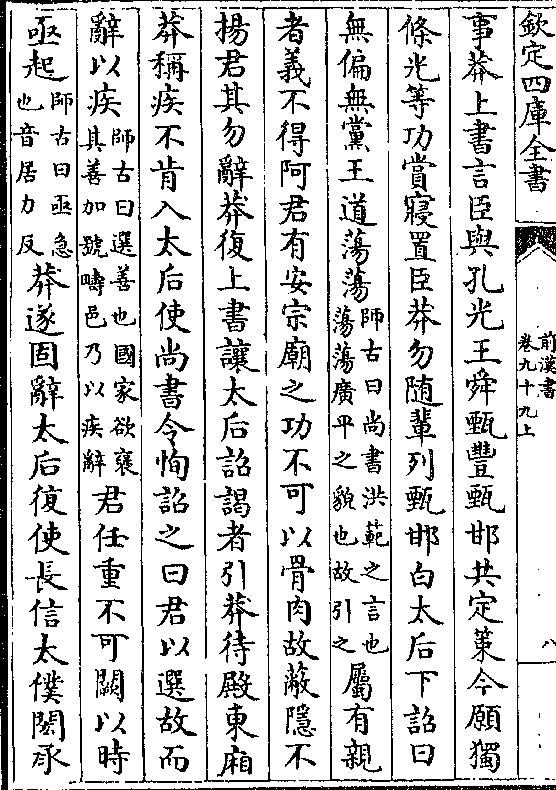 欽定四庫全書
前漢書
卷九十九上
八
事莽上書言臣與孔光王舜甄豐甄邯共定策今願獨
條光等功賞寢置臣莽勿隨輩列甄邯白太后下詔曰
無偏無黨王道蕩蕩師古曰尚書洪範之言也蕩蕩廣平之貌也故引之屬有親
者義不得阿君有安宗廟之功不可以骨肉故蔽隱不
揚君其勿辭莽復上書讓太后詔謁者引莽待殿東廂
莽稱疾不肯入太后使尚書令恂詔之曰君以選故而
辭以疾師古曰選善也國家欲襃其善加號疇邑乃以疾辭君任重不可闕以時
亟起師古曰亟急也音居力反莽遂固辭太后復使長信太僕閎承